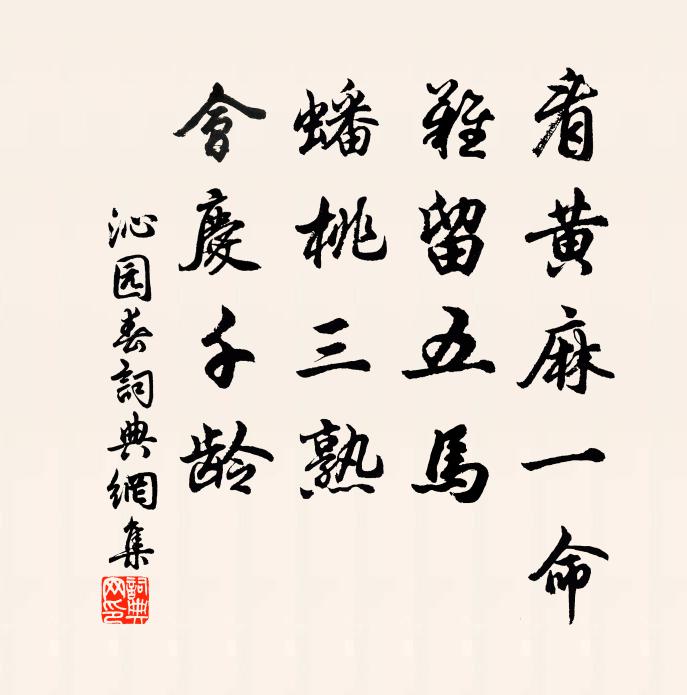 看黃麻一命
難留五馬
蟠桃三熟
會慶千齡
沁园春詞典網集
詞典网印